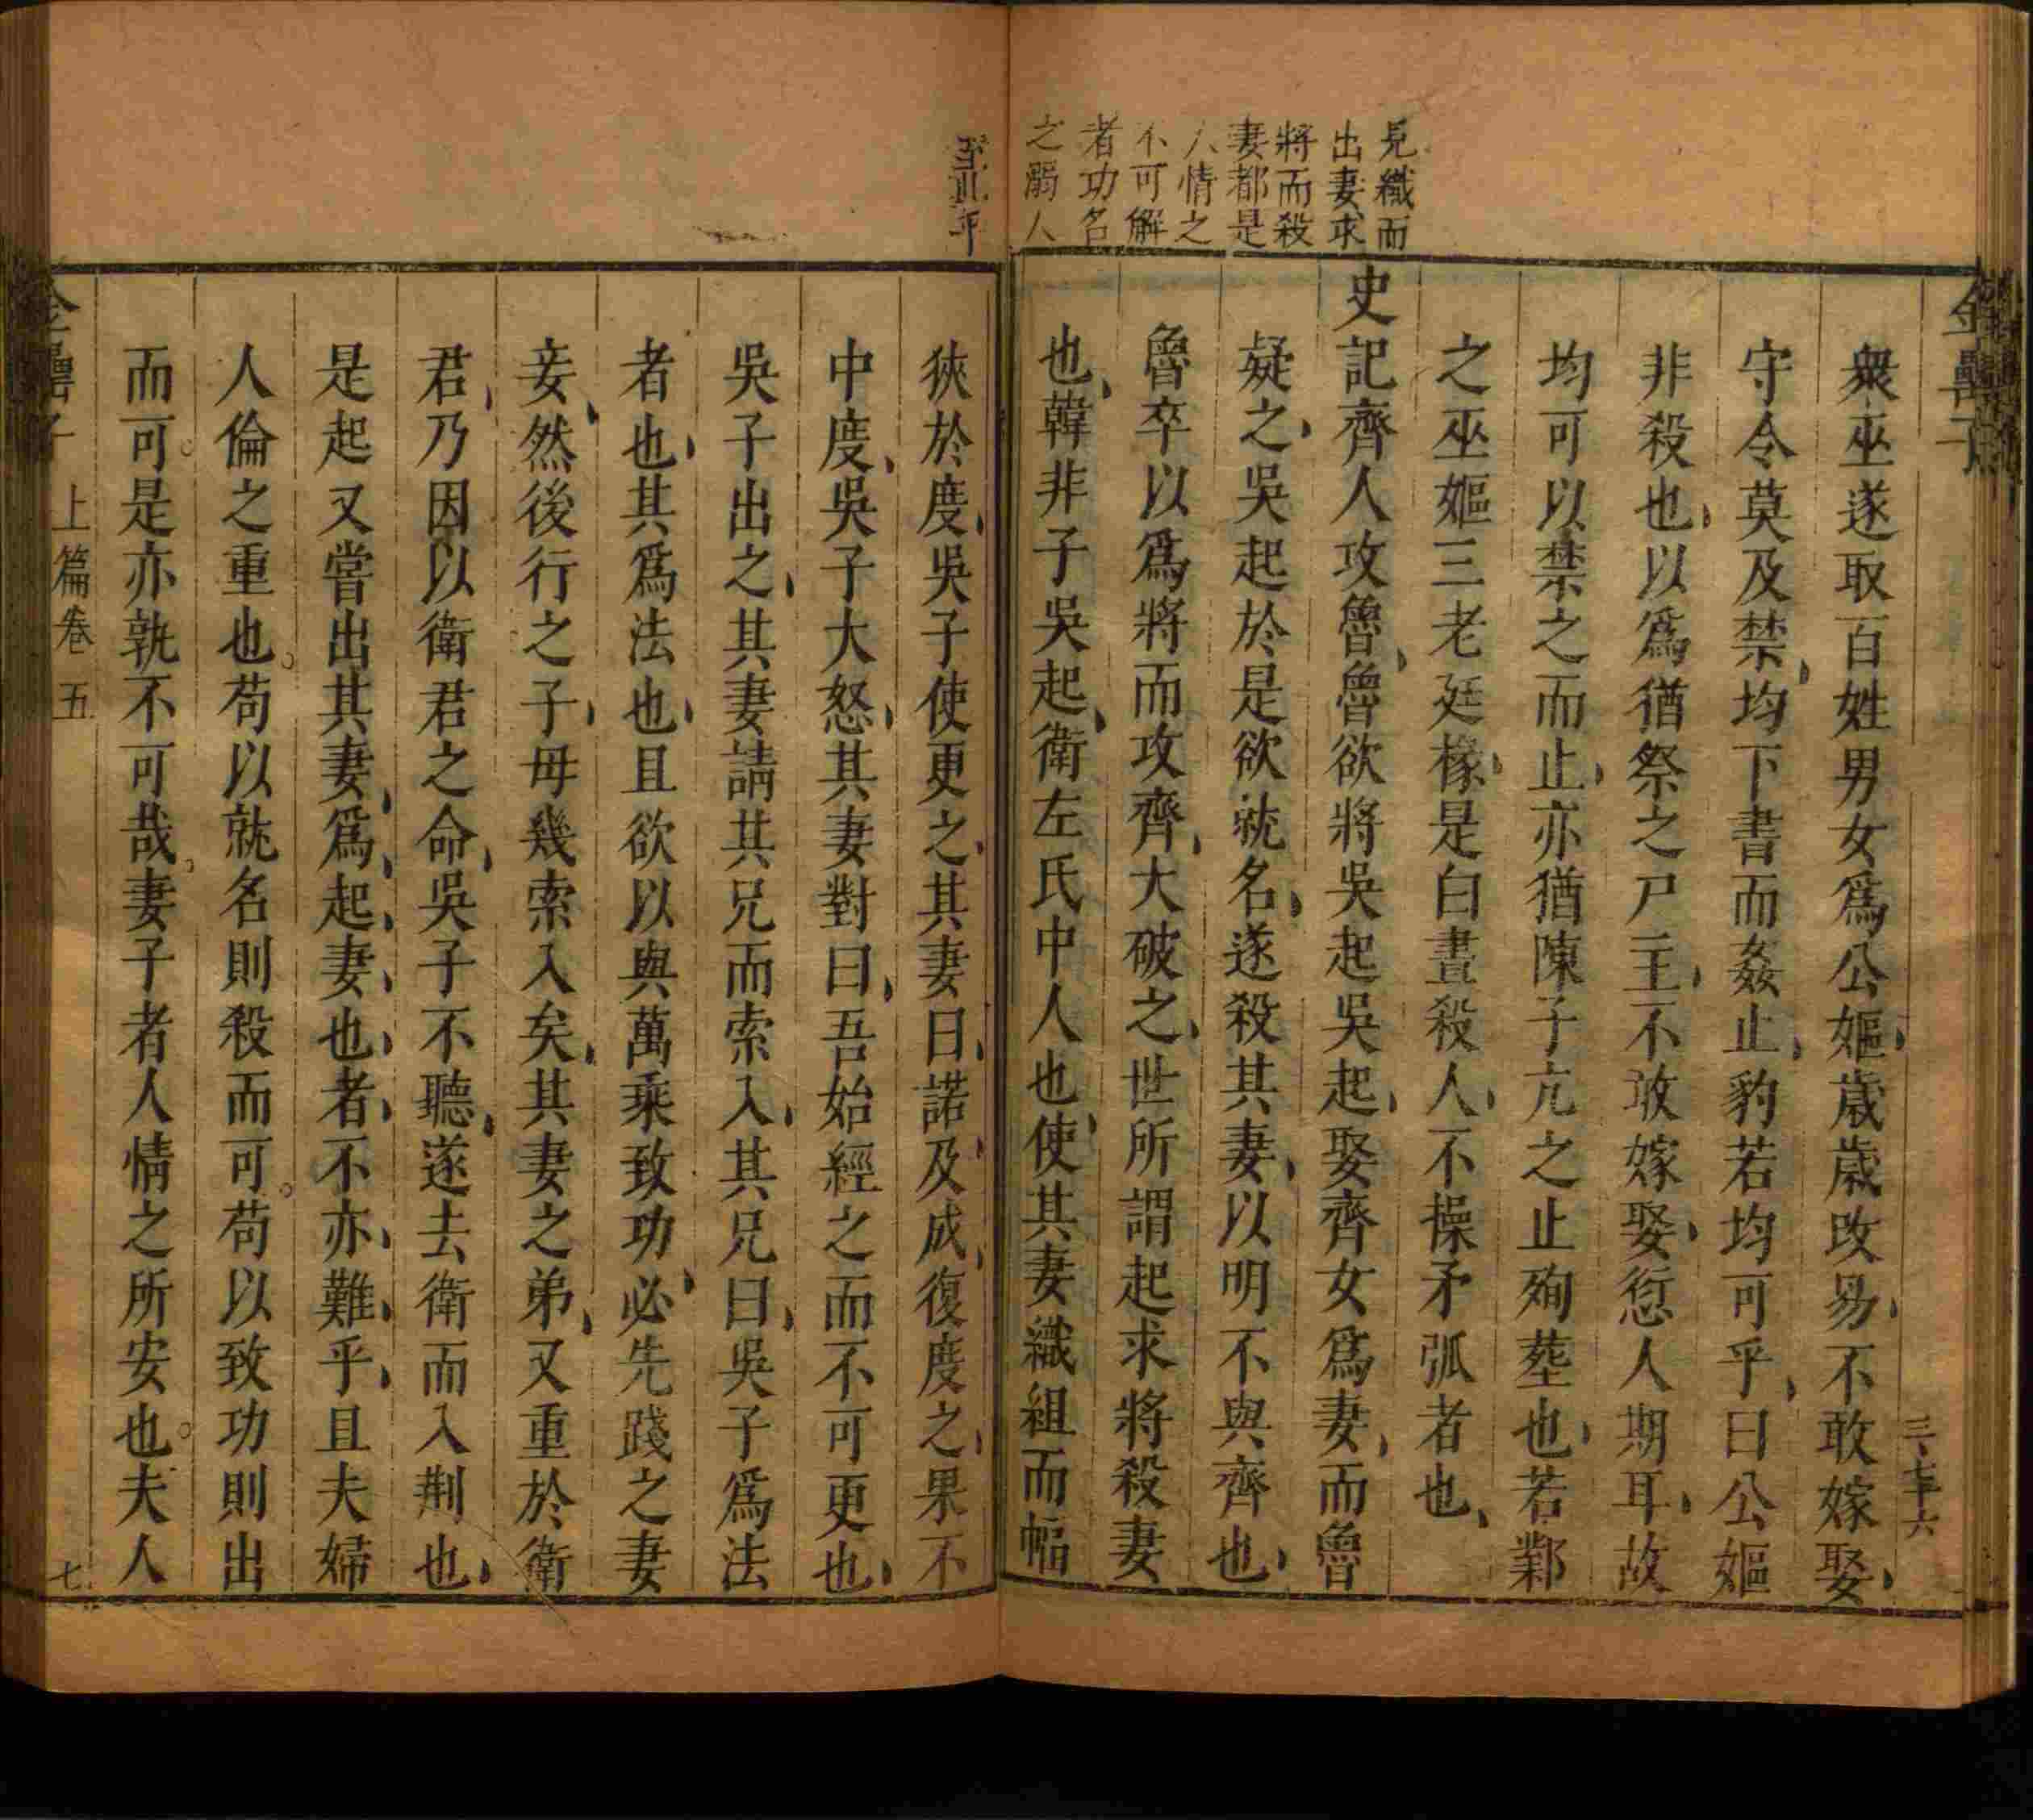 衆巫遂取百姓男女爲公嫗歲歲改易不敢嫁娶
守令莫及禁均下書而姦止豹若均可乎曰公嫗
非殺也以爲猶祭之尸主不敢嫁娶愆人期耳故
均可以禁之而止亦猶陳子亢之止殉塟也若鄴
之巫嫗三老廷掾是白晝殺人不操矛弧者也
史記齊人攻魯魯欲將吳起吳起娶齊女爲妻而魯
疑之吳起於是欲就名遂殺其妻以明不與齊也
魯卒以爲將而攻齊大破之世所謂起求將殺妻
也韓非子吳起衛左氏中人也使其妻織組而幅
見織而
出妻求
將而殺
妻都是
人情之
不可解
者功名
之溺人
至此乎
狹於度吳子使更之其妻曰諾及成復度之果不
中度吳子大怒其妻對曰吾始經之而不可更也
吳子出之其妻請其兄而索入其兄曰吳子爲法
者也其爲法也且欲以與萬乘致功必先踐之妻
妾然後行之子毋幾索入矣其妻之弟又重於衛
君乃因以衛君之命吳子不聽遂去衛而入荆也
是起又嘗出其妻爲起妻也者不亦難乎且夫婦
人倫之重也苟以就名則殺而可苟以致功則出
而可是亦孰不可哉妻子者人情之所安也夫人
上篇卷五
七